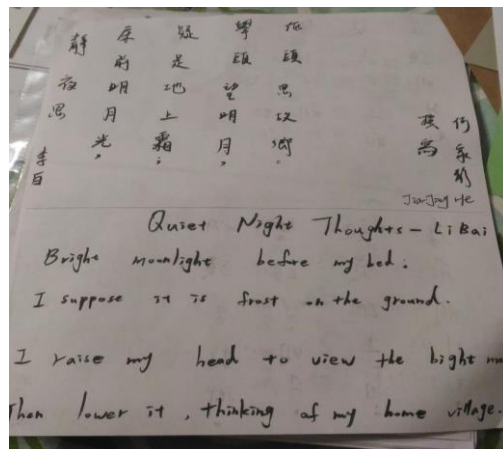 靜夜思
李白
床前明月光，
疑是地上霜。
舉頭望明月，
低頭思故鄉。
何家
He
Quiet Night Thoughts - Li Bai
Bright moonlight before my bed.
I suppose it is frost on the ground.
I raise my head to view the bight
Then lower it, thinking of my home village.